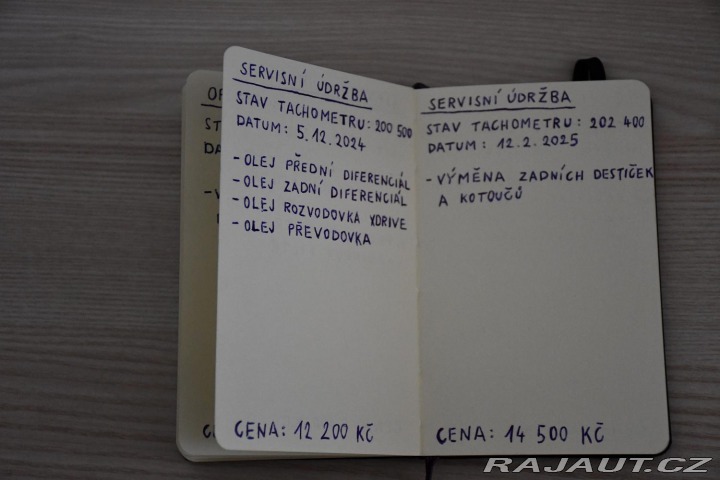 SERVISNÍ ÚDRŽBA
STAV TACHOMETRU: 200 500
DATUM: 5.12.2024
- OLEJ PŘEDNÍ DIFERENCIÁL
- OLEJ ZADNÍ DIFERENCIÁL
- OLEJ ROZVODOVKA XDRIVE
- OLEJ PŘEVODOVKA
CENA: 12 200 KČ
SERVISNÍ ÚDRŽBA
STAV TACHOMETRU: 202 400
DATUM: 12.2.2025
- VÝMĚNA ZADNÍCH DESTIČEK
A KOTOUČŮ
CENA: 14 500 KČ
RAJAUT.CZ